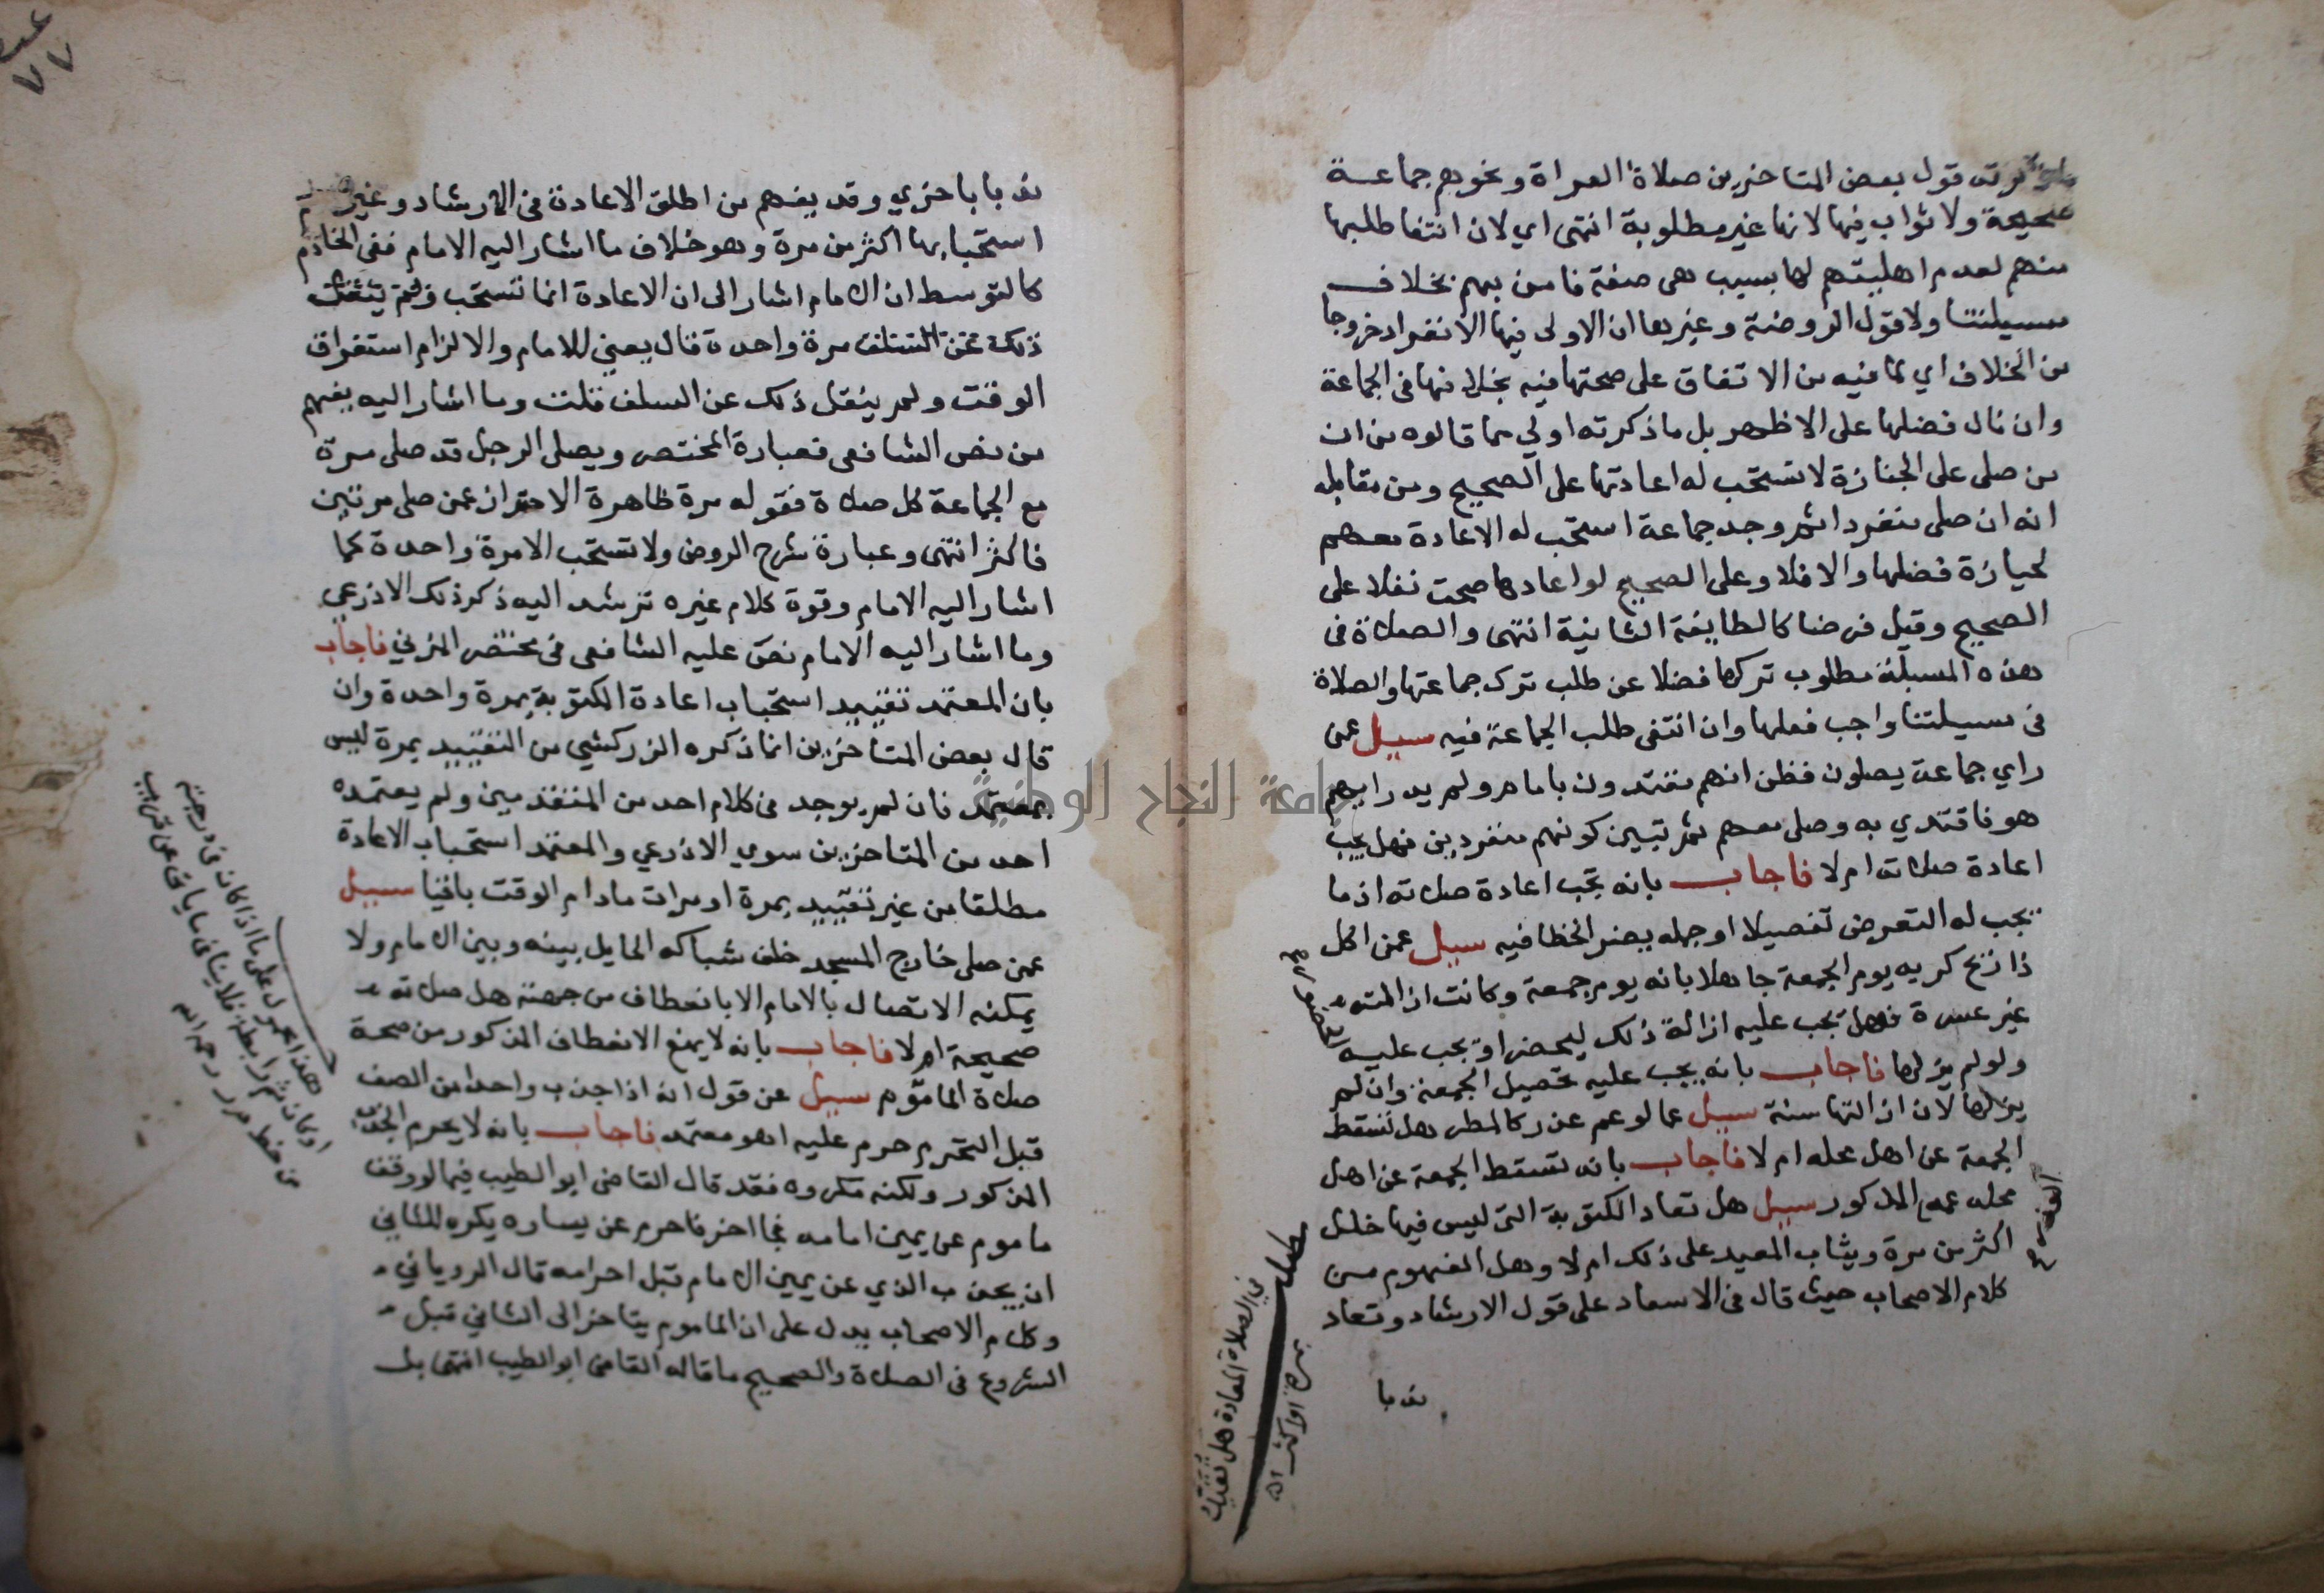 قول بعض المتاخرين صلاة العراة ونحوهم جماعة
صحيحة ولا ثواب فيها لانها غير مطلوبة انتهى اي لان انتفا طلبها
منهم لعدم اهليتهم لها بسبب هي صفة قامت بهم بخلاف
مسيلتنا ولا قول الروضة وغيرها ان الاولى فيها الانفراد خروجا
من الخلاف اي لما فيه من الاتفاق على صحتها فيه بخلافها في الجماعة
وان نال فضلها على الاظهر بل ما ذكرته اولي مما قالوه من ان
من صلى على الجنازة لا تستحب له اعادتها على الصحيح ومن مقابله
انه ان صلى منفردا ثم وجد جماعة استحب له الاعادة معهم
لحيازة فضلها والا فلا وعلى الصحيح لو اعادها صحت نفلا على
الصحيح وقيل فرضا كالطايفة الثانية انتهى والصلاة في
هذه المسيلة مطلوب تركها فضلا عن طلب ترك جماعتها والصلاة
في مسيلتنا واجب فعلها وان انتفى طلب الجماعة فيه سيل عمن
راي جماعة يصلون فظن انهم مقتدون بامام ولم يدر ايهم
هو فاقتدي به وصلى معهم ثم تبين كونهم منفردين فهل يجب
اعادة صلاته ام لا فاجاب بانه تجب اعادة صلاته اذ ما
يجب له التعرض تفصيلا او جمله يضر الخطا فيه سيل عمن اكل
ذا ريح كريه يوم الجمعة جاهلا بانه يوم جمعة وكانت ازالته
غير عسرة فهل تجب عليه ازالة ذلك ليحضر او تجب عليه
الحضور صح
ولو لم يزلها فاجاب بانه يجب عليه تحصيل الجمعة وان لم
يزلها لان ازالتها سنة سيل عما لو عم عذر كالمطر هل تسقط
الجمعة عن اهل محله ام لا فاجاب بانه تسقط الجمعة عن اهل
محله عمه المذكور سيل هل تعاد المكتوبة التي ليس فيها خلل
اكثر من مرة ويثاب المعيد على ذلك ام لا وهل المفهوم من
كلام الاصحاب حيث قال في الاسعاد على قول الارشاد وتعاد
ندبا
مطلب
في الصلاة المعادة هل تتقيد
بمرة او اكثر
ندبا باخري وقد يفهم من اطلاق الاعادة في الارشاد وغيره
استحبابها اكثر من مرة وهو خلاف ما اشار اليه الامام ففي الخادم
كالتوسط ان الامام اشار الى ان الاعادة انما تستحب
ذلك مرة واحدة قال يعني للامام والا لزم استغراق
الوقت ولم ينقل ذلك عن السلف قلت وما اشار اليه يفهم
من نص الشافعي فعبارة المختصر ويصلى الرجل قد صلى مرة
مع الجماعة كل صلاة فقوله مرة ظاهرة الاحتراز عمن صلى مرتين
فاكثر انتهى وعبارة شرح الروض ولا تستحب الا مرة واحدة كما
اشار اليه الامام وقوة كلام غيره ترشد اليه ذكر ذلك الاذرعي
وما اشار اليه الامام نص عليه الشافعي في مختصر المزني فاجاب
بان المعتمد تقييد استحباب اعادة المكتوبة بمرة واحدة وان
قال بعض المتاخرين انما ذكره الزركشي من التقييد بمرة ليس
بمعتمد فان لم يوجد في كلام احد من المتقدمين ولم يعتمده
احد من المتاخرين سوي الاذرعي والمعتمد استحباب الاعادة
مطلقا من غير تقييد بمرة او مرات مادام الوقت باقيا سيل
عمن صلى خارج المسجد خلف شباكه الحايل بينه وبين الامام ولا
يمكنه الاتصال بالامام الا بانعطاف من جهته هل صلاته
صحيحة ام لا فاجاب بانه لا يمنع الانعطاف المذكور من صحة
صلاة الماموم سيل عن قول انه اذا جذب واحدا من الصف
قبل التحرم حرم عليه اهو معتمد فاجاب بانه لا يحرم الجذب
المذكور ولكنه مكروه فقد قال القاضي ابو الطيب فيما لو وقف
ماموم عن يمين امامه فجا اخر فاحرم عن يساره يكره للثاني
ان يجذب الذي عن يمين الامام قبل احرامه قال الروياني
وكلام الاصحاب يدل على ان الماموم يتاخر الى الثاني قبل
الشروع في الصلاة والصحيح ما قاله القاضي ابو الطيب انتهى بل
هذا محمول على ما اذا كان في درجته
فلا ينافي ما ياتي عن قريب
جامعة النجاح الوطنية